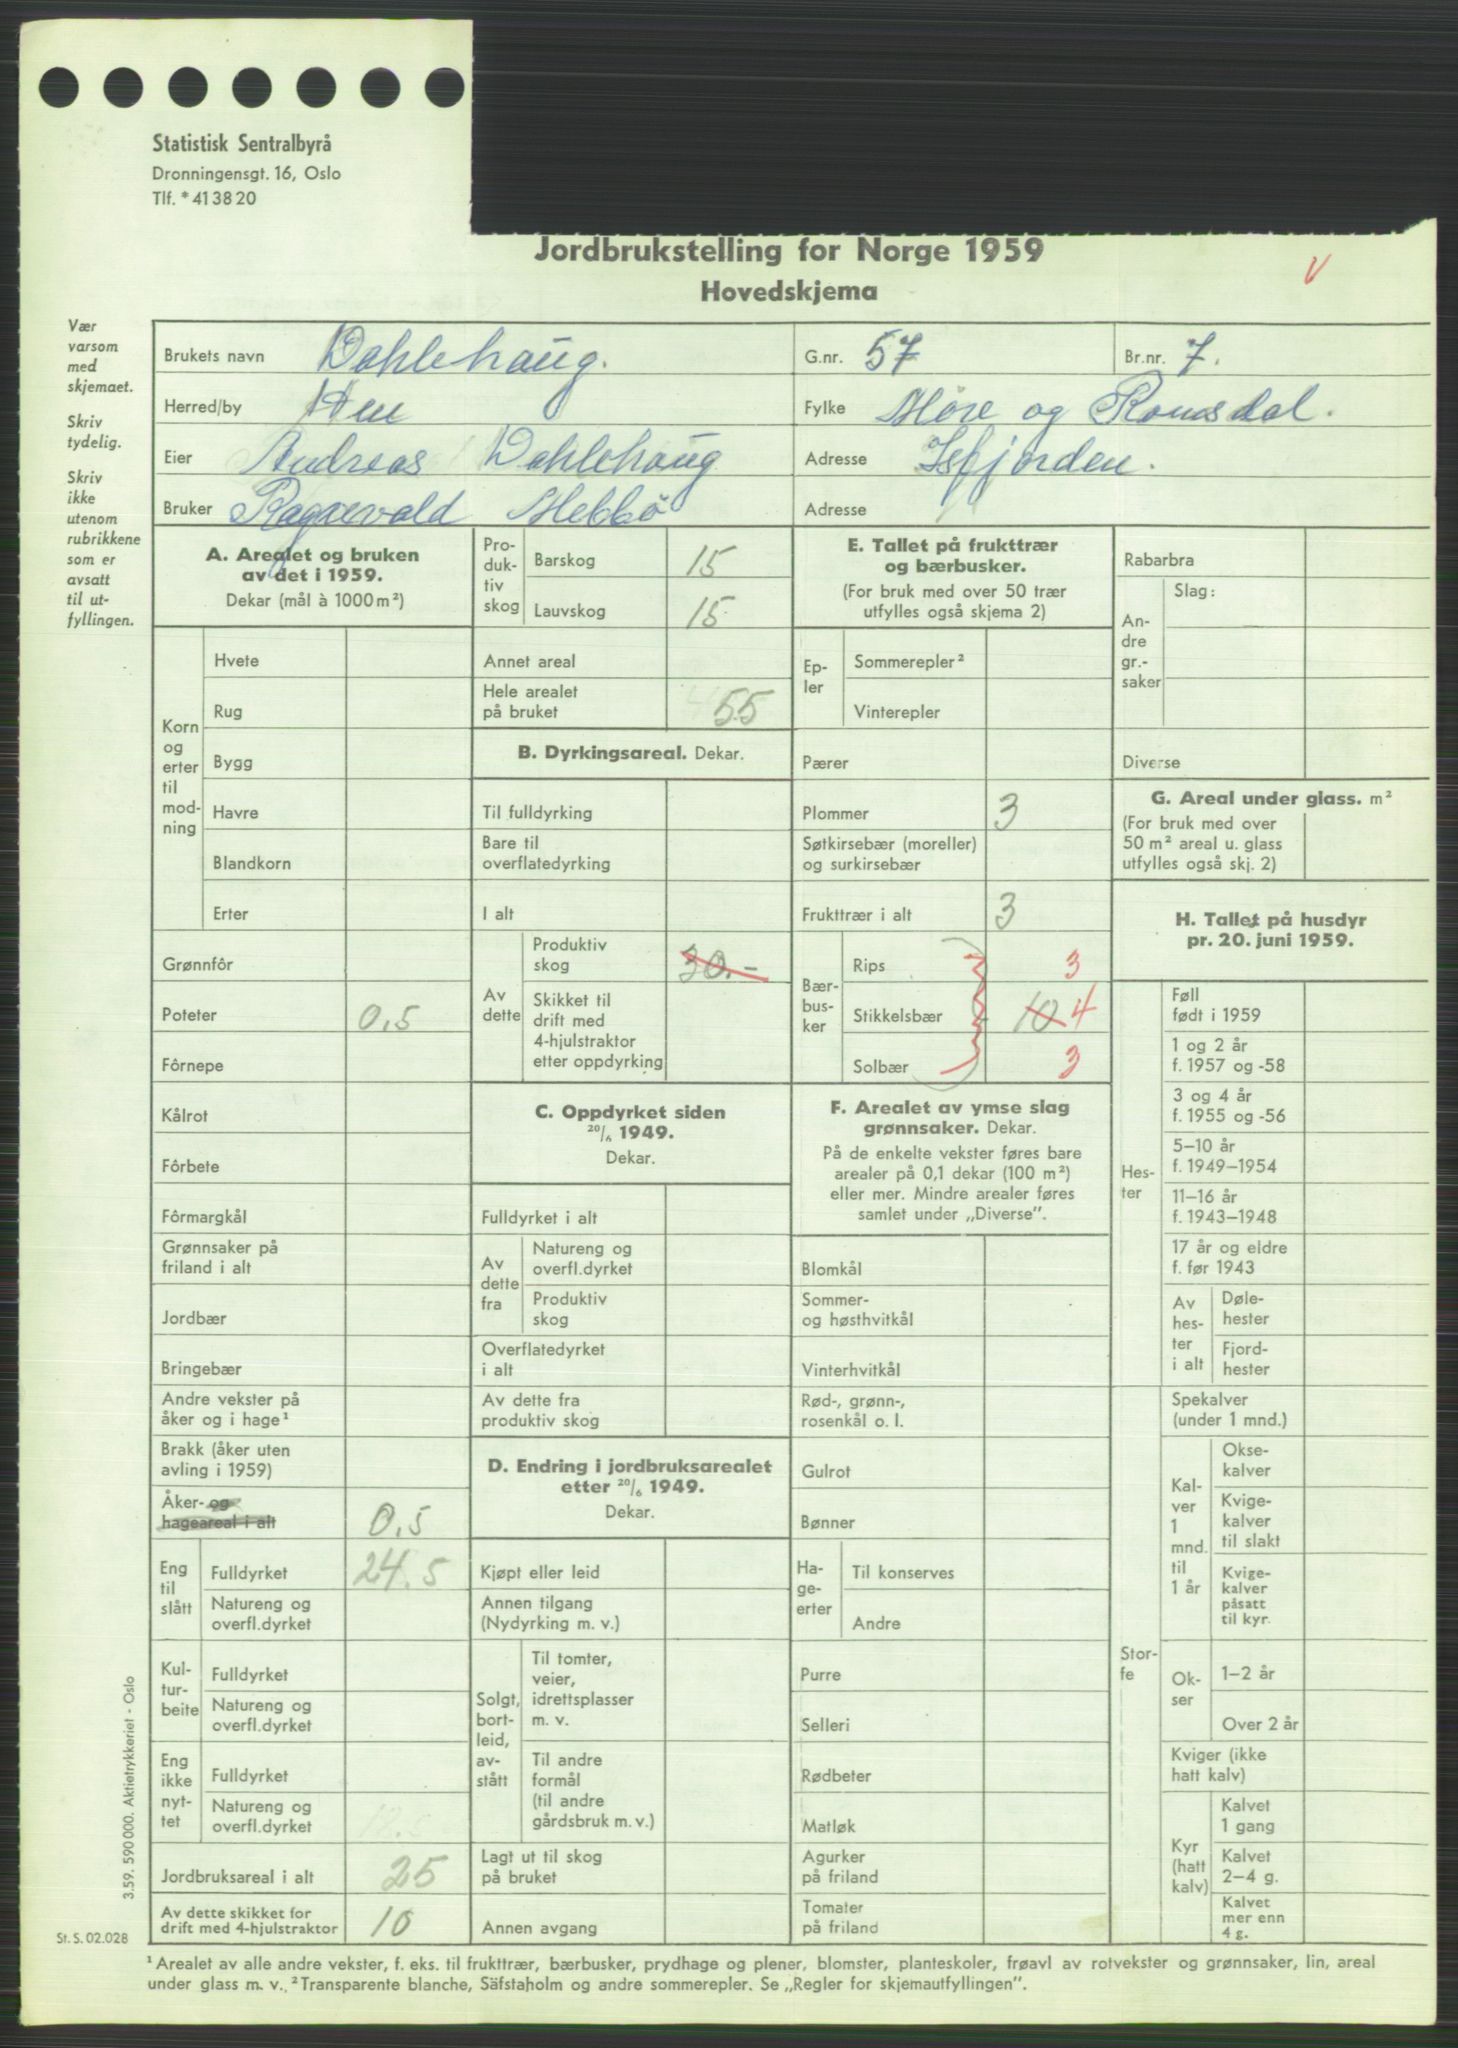 Statistisk Sentralbyrå
Dronningensgt. 16, Oslo
Tlf. * 41 38 20
Jordbrukstelling for Norge 1959
Hovedskjema
V
Vær
varsom
med
skjemaet.
Skriv
tydelig.
Skriv
ikke
utenom
rubrikkene
som er
avsatt
til ut-
fyllingen.
Brukets navn Dahlehaug. G.nr. 57 Br.nr. 7.
Herred/by Hen Fylke Møre og Romsdal.
Eier Andreas Dahlehaug Adresse Isfjorden.
Bruker Ragnvald Adresse
A. Arealet og bruken
av det i 1959.
Dekar (mål à 1000 m²)
Korn
og
erter
til
mod-
ning
Hvete
Rug
Bygg
Havre
Blandkorn
Erter
Grønnfôr
Poteter 0,5
Fôrnepe
Kålrot
Fôrbete
Fôrmargkål
Grønnsaker på
friland i alt
Jordbær
Bringebær
Andre vekster på
åker og i hage¹
Brakk (åker uten
avling i 1959)
Åker- og
hageareal i alt 0.5
Eng
til
slått
Fulldyrket 24.5
Natureng og
overfl.dyrket
Kul-
tur-
beite
Fulldyrket
Natureng og
overfl.dyrket
Eng
ikke
nyt-
tet
Fulldyrket
Natureng og
overfl.dyrket
Jordbruksareal i alt 25
Av dette skikket for
drift med 4-hjulstraktor 10
Pro-
duk-
tiv
skog
Barskog 15
Lauvskog 15
Annet areal
Hele arealet
på bruket 55
B. Dyrkingsareal. Dekar.
Til fulldyrking
Bare til
overflatedyrking
I alt
Av
dette
Produktiv
skog 30.-
Skikket til
drift med
4-hjulstraktor
etter oppdyrking
C. Oppdyrket siden
20/6 1949.
Dekar.
Fulldyrket i alt
Av
dette
fra
Natureng og
overfl.dyrket
Produktiv
skog
Overflatedyrket
i alt
Av dette fra
produktiv skog
D. Endring i jordbruksarealet
etter 20/6 1949.
Dekar.
Kjøpt eller leid
Annen tilgang
(Nydyrking m. v.)
Solgt,
bort-
leid,
av-
stått
Til tomter,
veier,
idrettsplasser
m. v.
Til andre
formål
(til andre
gårdsbruk m. v.)
Lagt ut til skog
på bruket
Annen avgang
E. Tallet på frukttrær
og bærbusker.
(For bruk med over 50 trær
utfylles også skjema 2)
Ep-
ler
Sommerepler²
Vinterepler
Pærer
Plommer 3
Søtkirsebær (moreller)
og surkirsebær
Frukttrær i alt 3
Bær-
bus-
ker
Rips 3
Stikkelsbær 10 4
Solbær 3
F. Arealet av ymse slag
grønnsaker. Dekar.
På de enkelte vekster føres bare
arealer på 0,1 dekar (100 m²)
eller mer. Mindre arealer føres
samlet under „Diverse”.
Blomkål
Sommer-
og høsthvitkål
Vinterhvitkål
Rød-, grønn-,
rosenkål o. l.
Gulrot
Bønner
Ha-
ge-
erter
Til konserves
Andre
Purre
Selleri
Rødbeter
Matløk
Agurker
på friland
Tomater
på friland
Rabarbra
An-
dre
gr.-
saker
Slag:
Diverse
G. Areal under glass. m²
(For bruk med over
50 m² areal u. glass
utfylles også skj. 2)
H. Tallet på husdyr
pr. 20. juni 1959.
Hes-
ter
Føll
født i 1959
1 og 2 år
f. 1957 og -58
3 og 4 år
f. 1955 og -56
5–10 år
f. 1949–1954
11–16 år
f. 1943–1948
17 år og eldre
f. før 1943
Av
hes-
ter
i alt
Døle-
hester
Fjord-
hester
Stor-
fe
Spekalver
(under 1 mnd.)
Kal-
ver
1
mnd.
til
1 år
Okse-
kalver
Kvige-
kalver
til slakt
Kvige-
kalver
påsatt
til kyr.
Ok-
ser
1–2 år
Over 2 år
Kviger (ikke
hatt kalv)
Kyr
(hatt
kalv)
Kalvet
1 gang
Kalvet
2–4 g.
Kalvet
mer enn
4 g.
3.59. 590 000. Aktietrykkeriet - Oslo
St. S. 02.028
¹ Arealet av alle andre vekster, f. eks. til frukttrær, bærbusker, prydhage og plener, blomster, planteskoler, frøavl av rotvekster og grønnsaker, lin, areal
under glass m. v. ² Transparente blanche, Säfstaholm og andre sommerepler. Se „Regler for skjemautfyllingen”.